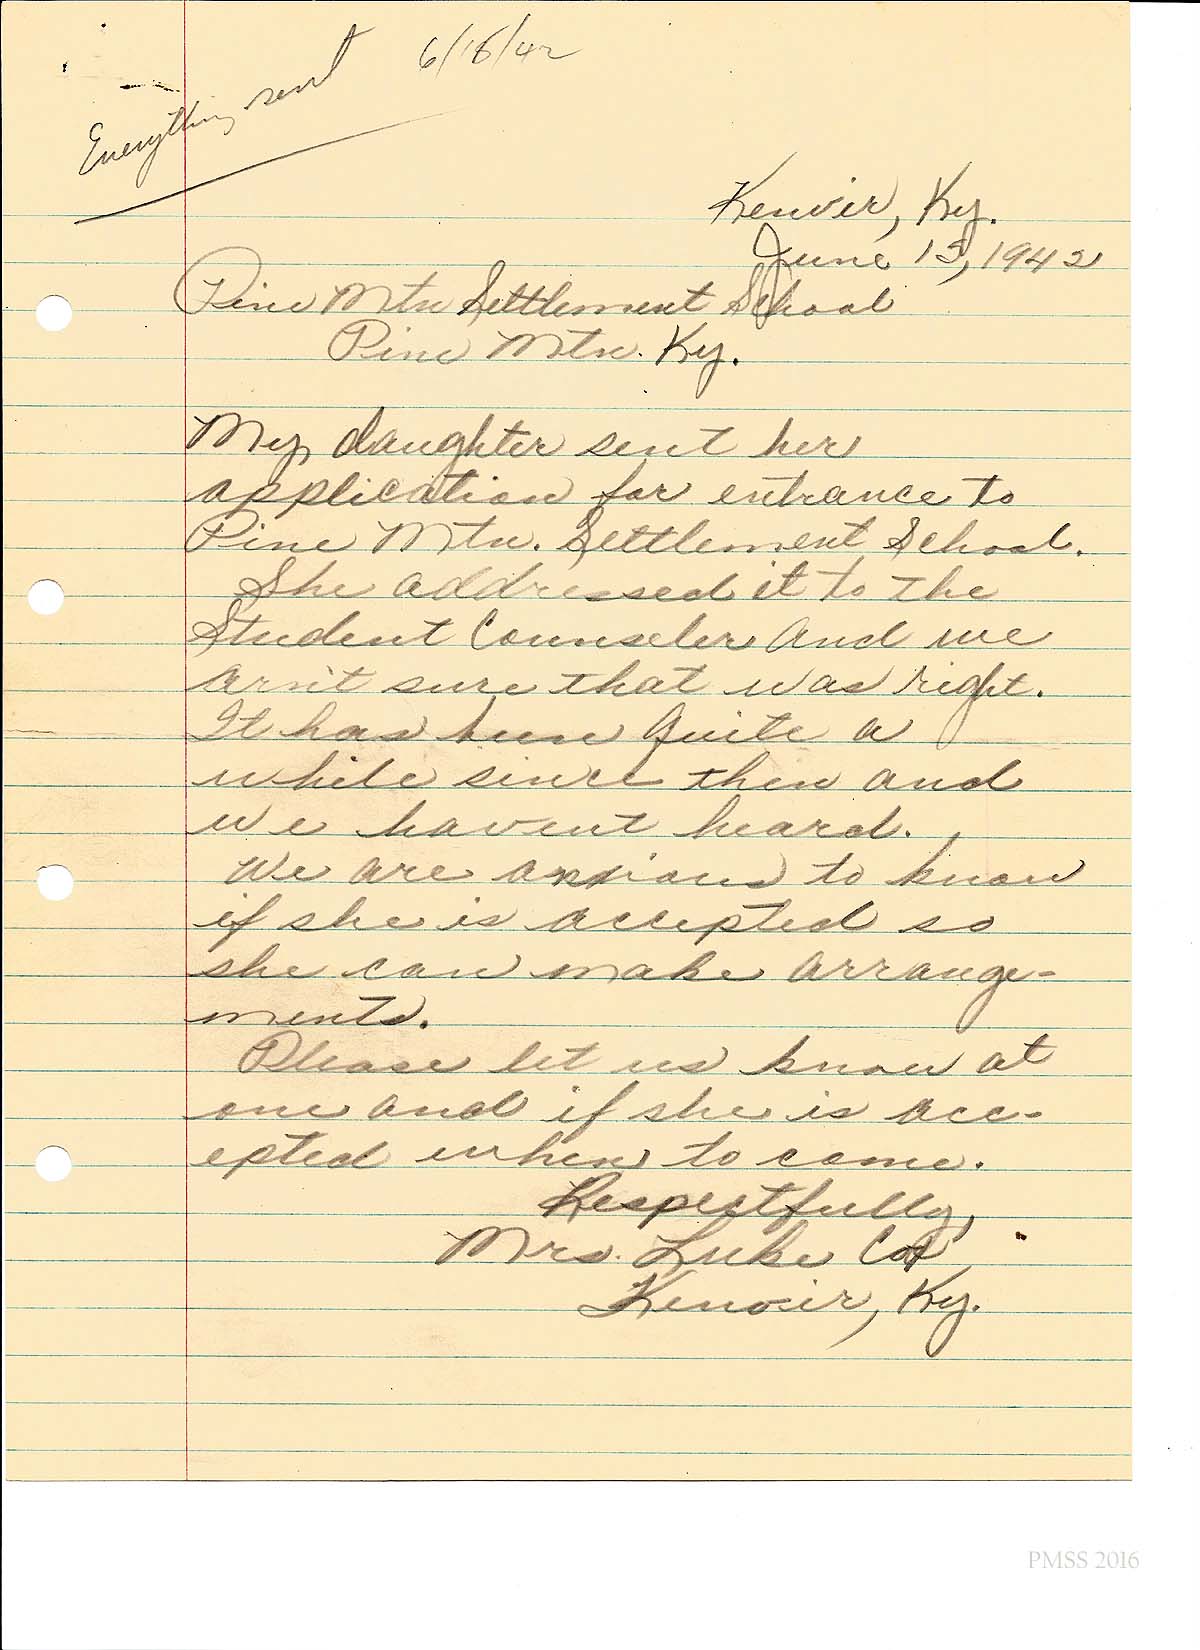 Everything sent 6/18/42
Kenvir, Ky.
June 13, 1942
Pine Mtn Settlement School
Pine Mtn. Ky.
My daughter sent her
application for entrance to
Pine Mtn. Settlement School.
She addressed it to the
Student Counseler and we
arn't sure that was right.
It has been quite a
while since then and
we havent heard.
We are anxious to know
if she is accepted so
she can make arrange-
ments.
Please let us know at
one and if she is acc-
epted when to come.
Respectfully,
Mrs. Luke Cox
Kenvir, Ky.
PMSS 2016